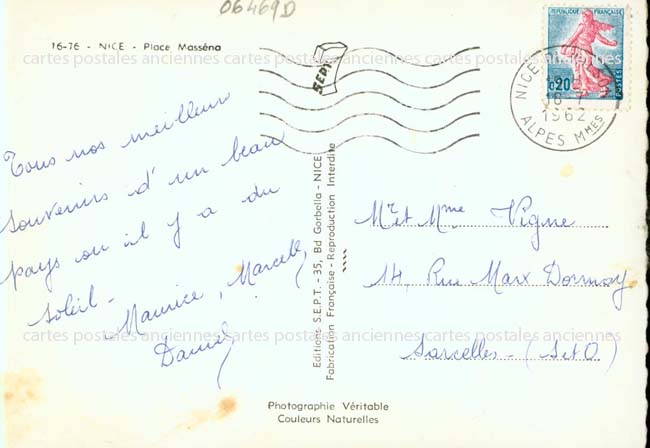 06469D
16-76 - NICE - Place Masséna
RÉPUBLIQUE FRANÇAISE
0,20
POSTES
NICE
18-7
1962
ALPES Mmes
SEPT
Tous nos meilleurs
souvenirs d'un beau
pays ou il y a du
soleil -
Maurice, Marcelle,
Daniel
Editions S.E.P.T. - 35, Bd Gorbella - NICE
Fabrication Française - Reproduction Interdite
Mr et Mme Vigne
14, Rue Marx Dormoy
Sarcelles - (S et O)
Photographie Véritable
Couleurs Naturelles
cartes postales anciennes cartes postales anciennes cartes postales anciennes
cartes postales anciennes cartes postales anciennes cartes postales anciennes